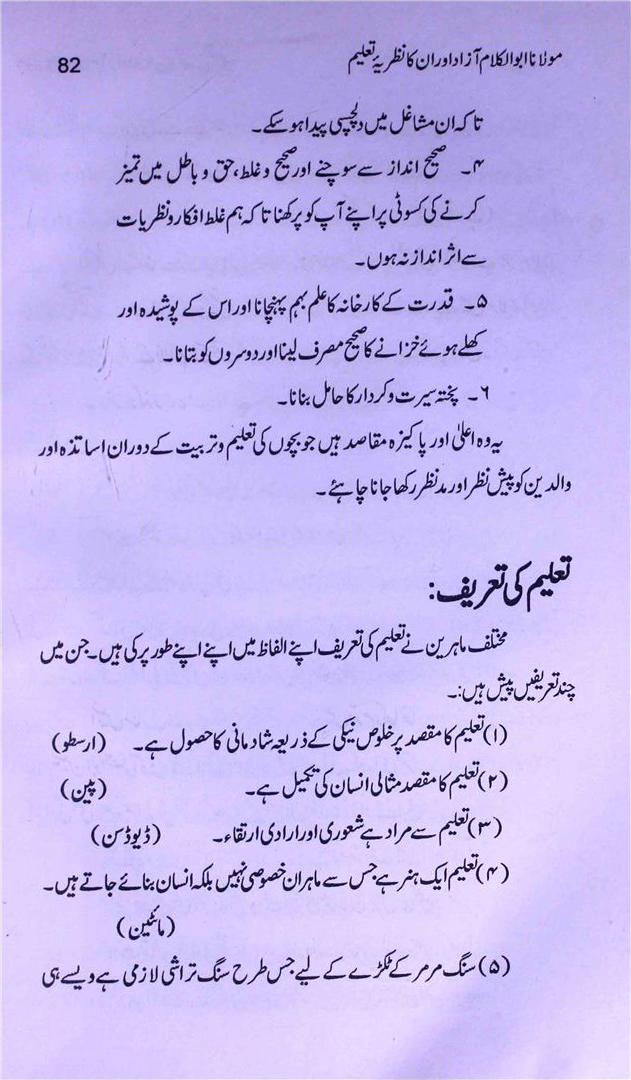 مولانا ابوالکلام آزاد اور ان کا نظریۂ تعلیم 82
تاکہ ان مشاغل میں دلچسپی پیدا ہو سکے۔
۴۔ صحیح انداز سے سوچنے اور صحیح و غلط، حق و باطل میں تمیز
کرنے کی کسوٹی پر اپنے آپ کو پرکھنا تاکہ ہم غلط افکار و نظریات
سے اثر انداز نہ ہوں۔
۵۔ قدرت کے کارخانہ کا علم بہم پہنچانا اور اس کے پوشیدہ اور
کھلے ہوئے خزانے کا صحیح مصرف لینا اور دوسروں کو بتانا۔
۶۔ پختہ سیرت و کردار کا حامل بنانا۔
یہ وہ اعلیٰ اور پاکیزہ مقاصد ہیں جو بچوں کی تعلیم و تربیت کے دوران اساتذہ اور
والدین کو پیش نظر اور مدنظر رکھا جانا چاہئے۔
تعلیم کی تعریف:
مختلف ماہرین نے تعلیم کی تعریف اپنے الفاظ میں اپنے اپنے طور پر کی ہیں۔ جن میں
چند تعریفیں پیش ہیں:۔
(۱) تعلیم کا مقصد پر خلوص نیکی کے ذریعہ شادمانی کا حصول ہے۔ (ارسطو)
(۲) تعلیم کا مقصد مثالی انسان کی تکمیل ہے۔ (پین)
(۳) تعلیم سے مراد ہے شعوری اور ارادی ارتقاء۔ (ڈیوڈسن)
(۴) تعلیم ایک ہنر ہے جس سے ماہران خصوصی نہیں بلکہ انسان بنائے جاتے ہیں۔
(مانٹین)
(۵) سنگ مرمر کے ٹکڑے کے لیے جس طرح سنگ تراشی لازمی ہے ویسے ہی